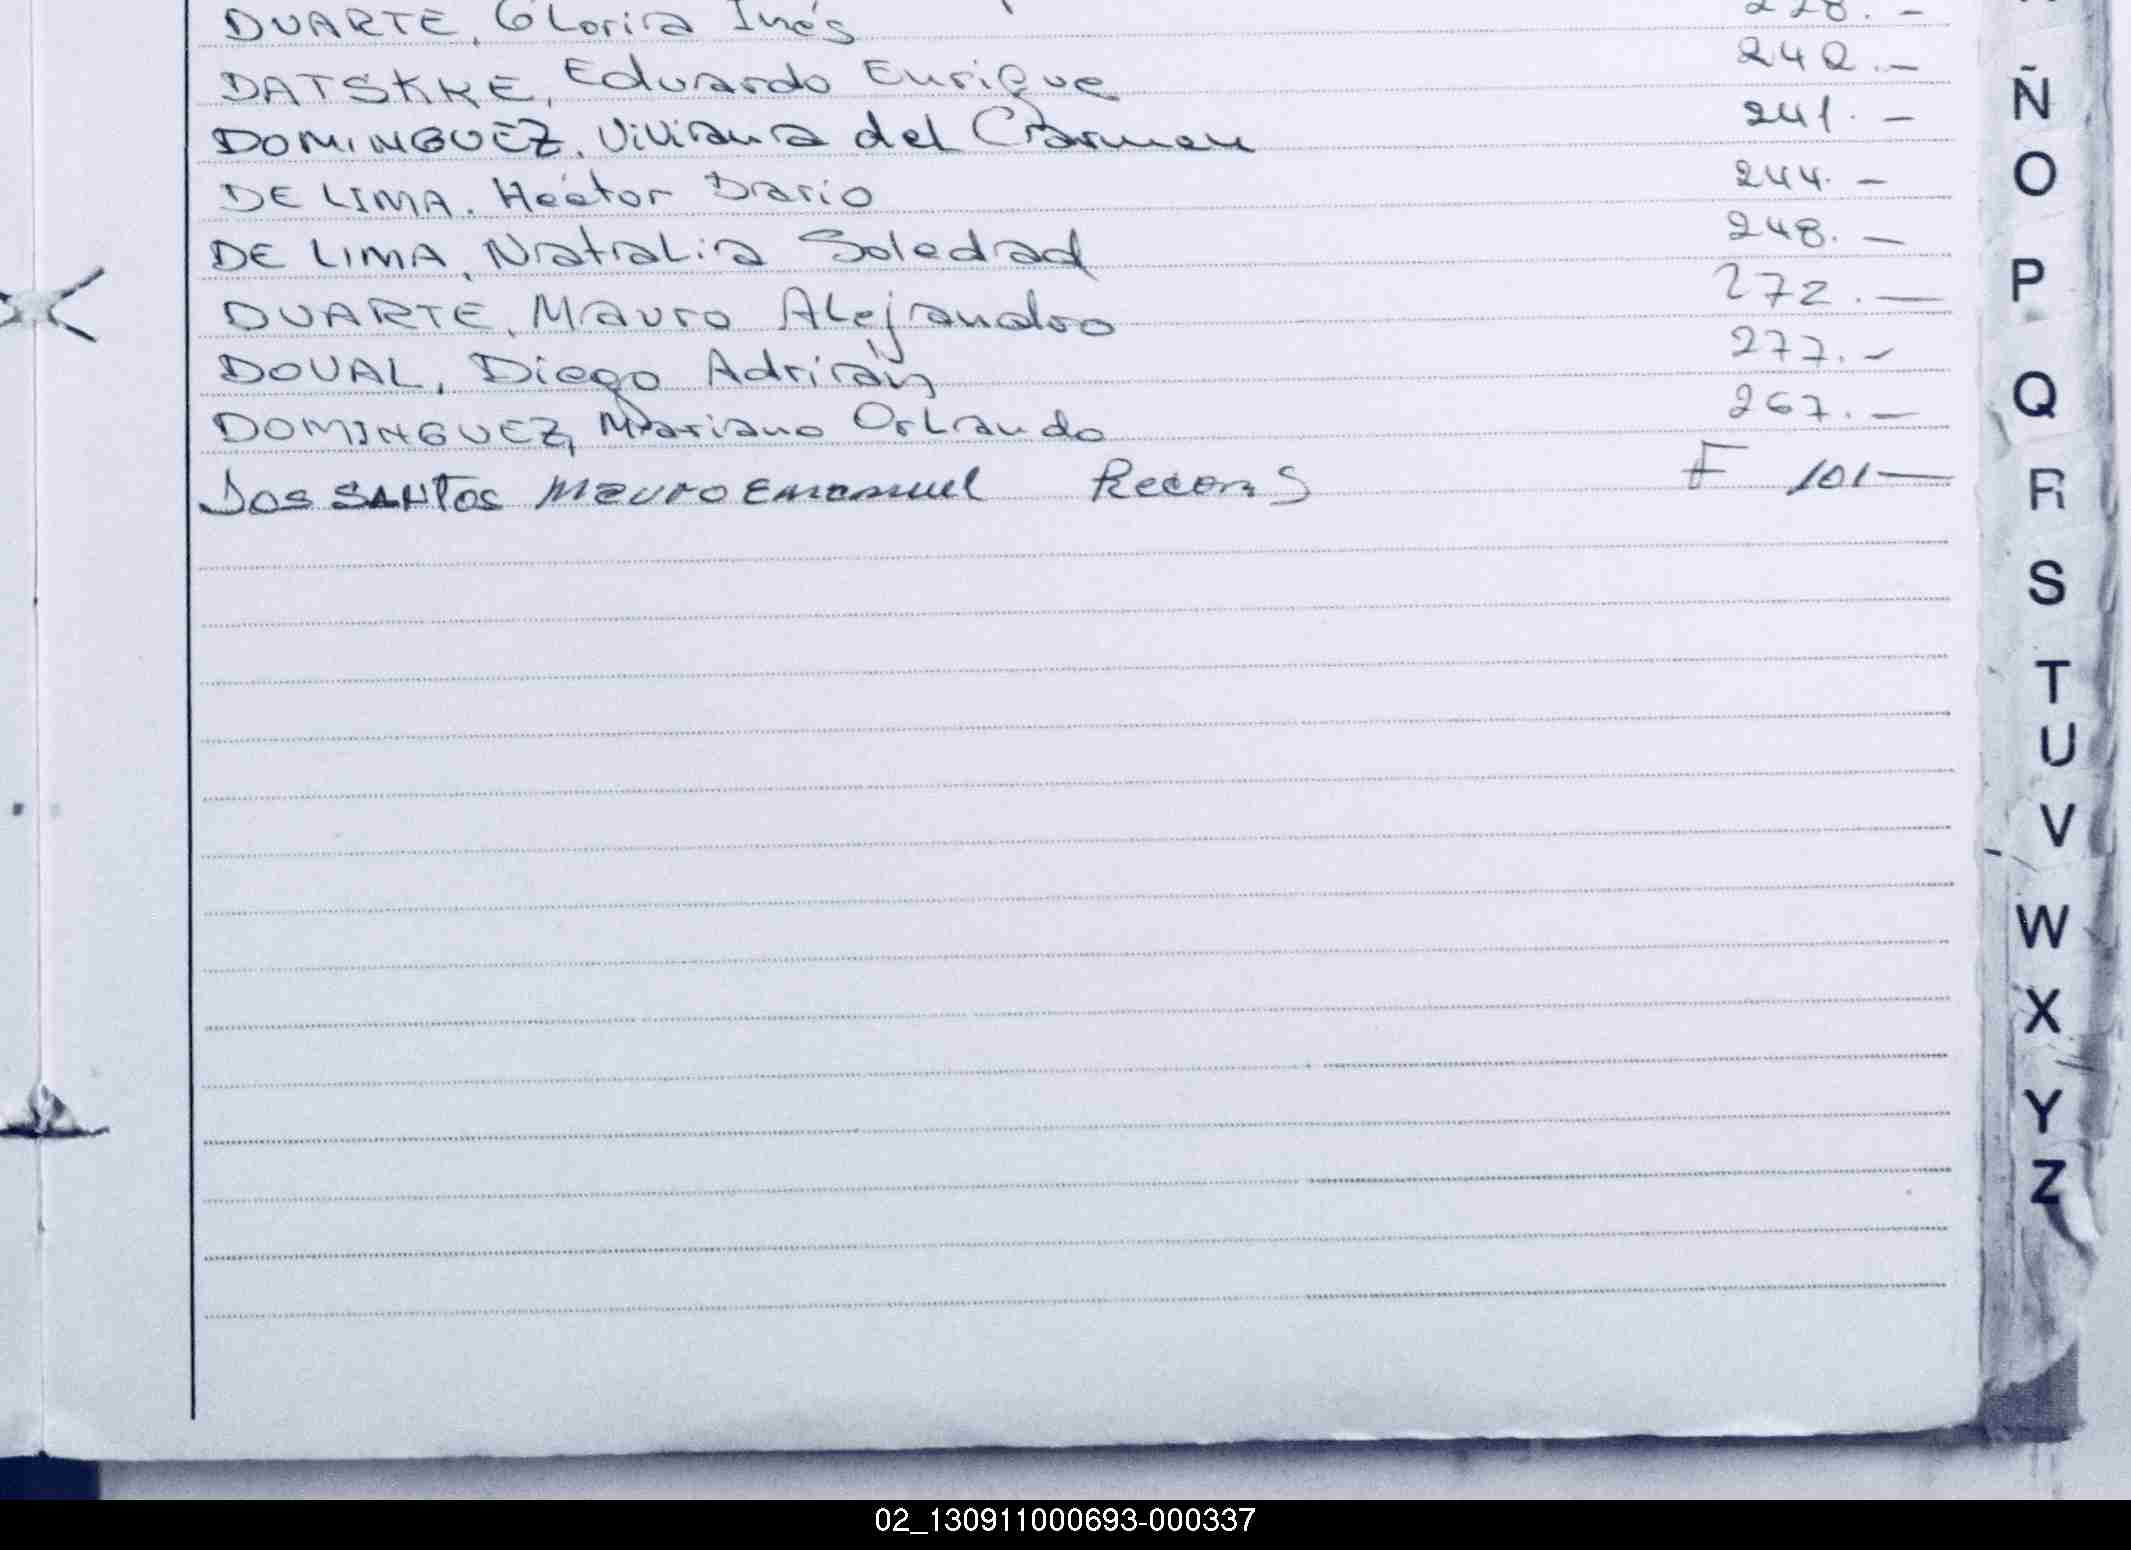 DUARTE, Gloria Inés 228.-
DATSKKE, Eduardo Enrique 242.-
DOMINGUEZ, Viviana del Carmen 241.-
DE LIMA, Héctor Dario 244.-
DE LIMA, Natalia Soledad 248.-
DUARTE, Mauro Alejandro 272.-
DOUAL, Diego Adrián 277.-
DOMINGUEZ, Mariano Orlando 267.-
Dos SANTos Mauro Emanuel F 101-
Ñ
O
P
Q
R
S
T
U
V
W
X
Y
Z
02_130911000693-000337